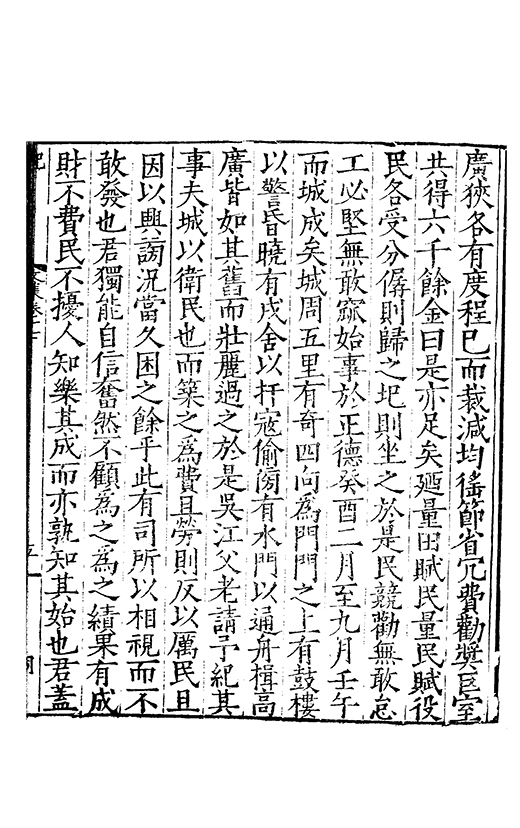 廣狹各有度程已而裁減均徭節省冗費勸奬巨室
共得六千餘金曰是亦足矣廼量田賦民量民賦役
民各受分僝則歸之圯則坐之於是民競勸無敢怠
工必堅無敢窳始事於正德癸酉二月至九月壬午
而城成矣城周五里有奇四向為門門之上有鼓樓
以警昏曉有戍舍以扞寇偷傍有水門以通舟楫高
廣皆如其舊而壯麗過之於是吳江父老請予紀其
事夫城以衛民也而築之為費且勞則反以厲民且
因以興謗況當久困之餘乎此有司所以相視而不
敢發也君獨能自信奮然不顧為之為之績果有成
財不費民不擾人知樂其成而亦孰知其始也君蓋